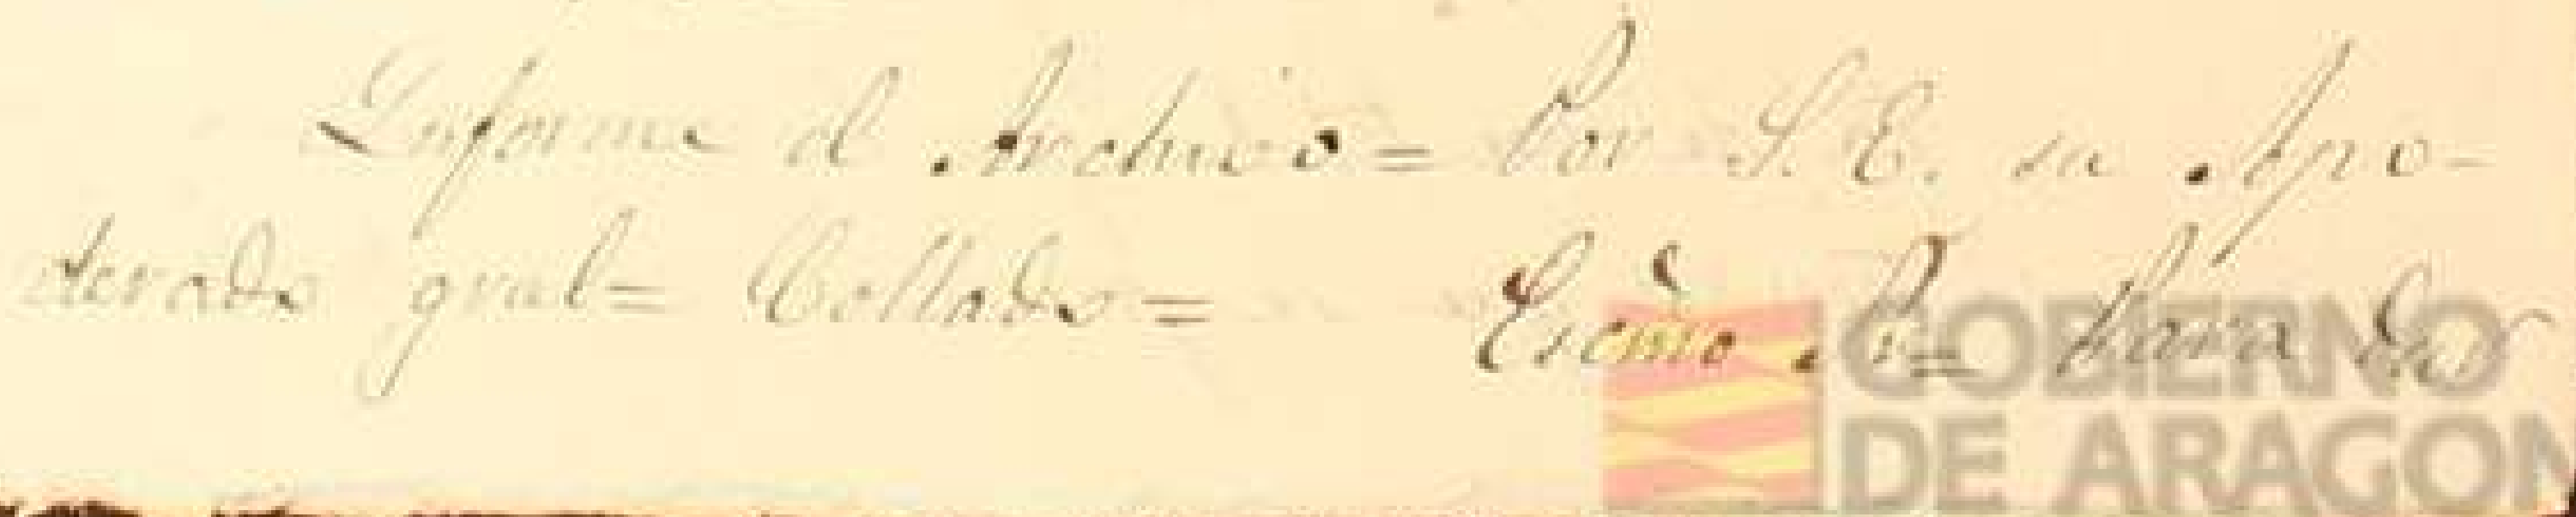 Informe el Archivo = Por S. E. su Apo-
derado gral = Collado = Escmo. Sr = Para
GOBIERNO
DE ARAGON